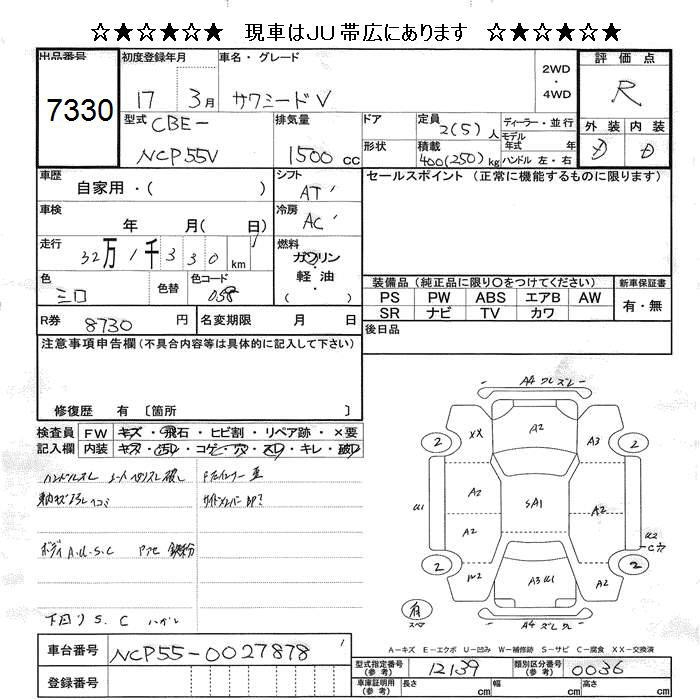 ☆★☆★☆★ 現車はJU帯広にあります ☆★☆★☆★
出品番号 初度登録年月 車名・グレード 評価点
7330 17 3月 サクシードV 2WD・4WD R
型式 CBE- 排気量 ドア 定員 2(5)人 ディーラー・並行 外装 内装
NCP55V 1500cc 形状 積載 400(250)kg モデル年式 年 D D
ハンドル 左・右
車歴 自家用・( ) シフト AT セールスポイント (正常に機能するものに限ります)
車検 年 月( 日) 冷房 AC
走行 32万1千330km 燃料 ガソリン・軽油
色 シロ 色替 色コード 058 装備品(純正品に限り○をつけてください) 新車保証書
PS PW ABS エアB AW 有・無
SR ナビ TV カワ
R券 8730円 名変期限 月 日 後日品
注意事項申告欄(不具合内容等は具体的に記入して下さい)
修復歴 有〔箇所
検査員 FW キズ・飛石・ヒビ割・リペア跡・×要
記入欄 内装 キズ・汚レ・コゲ・穴・スレ・キレ・破レ
ハンドルスレ シート
ボディ A.U.S.C
下回り S.C ハガレ
A4 ズレ
XX A2 A3
2 2
A2 SA1 A2
U1 A2 U2
C穴
2 2
W2 A3 U1 A2
有
スペア
A4 ズレ
A-キズ E-エクボ U-凹み W-補修跡 S-サビ C-腐食 XX-交換済
車台番号 NCP55-0027878 型式指定番号(参考) 12139 類別区分番号(参考) 0036
登録番号 車庫証明用(参考) 長さ cm 幅 cm 高さ cm